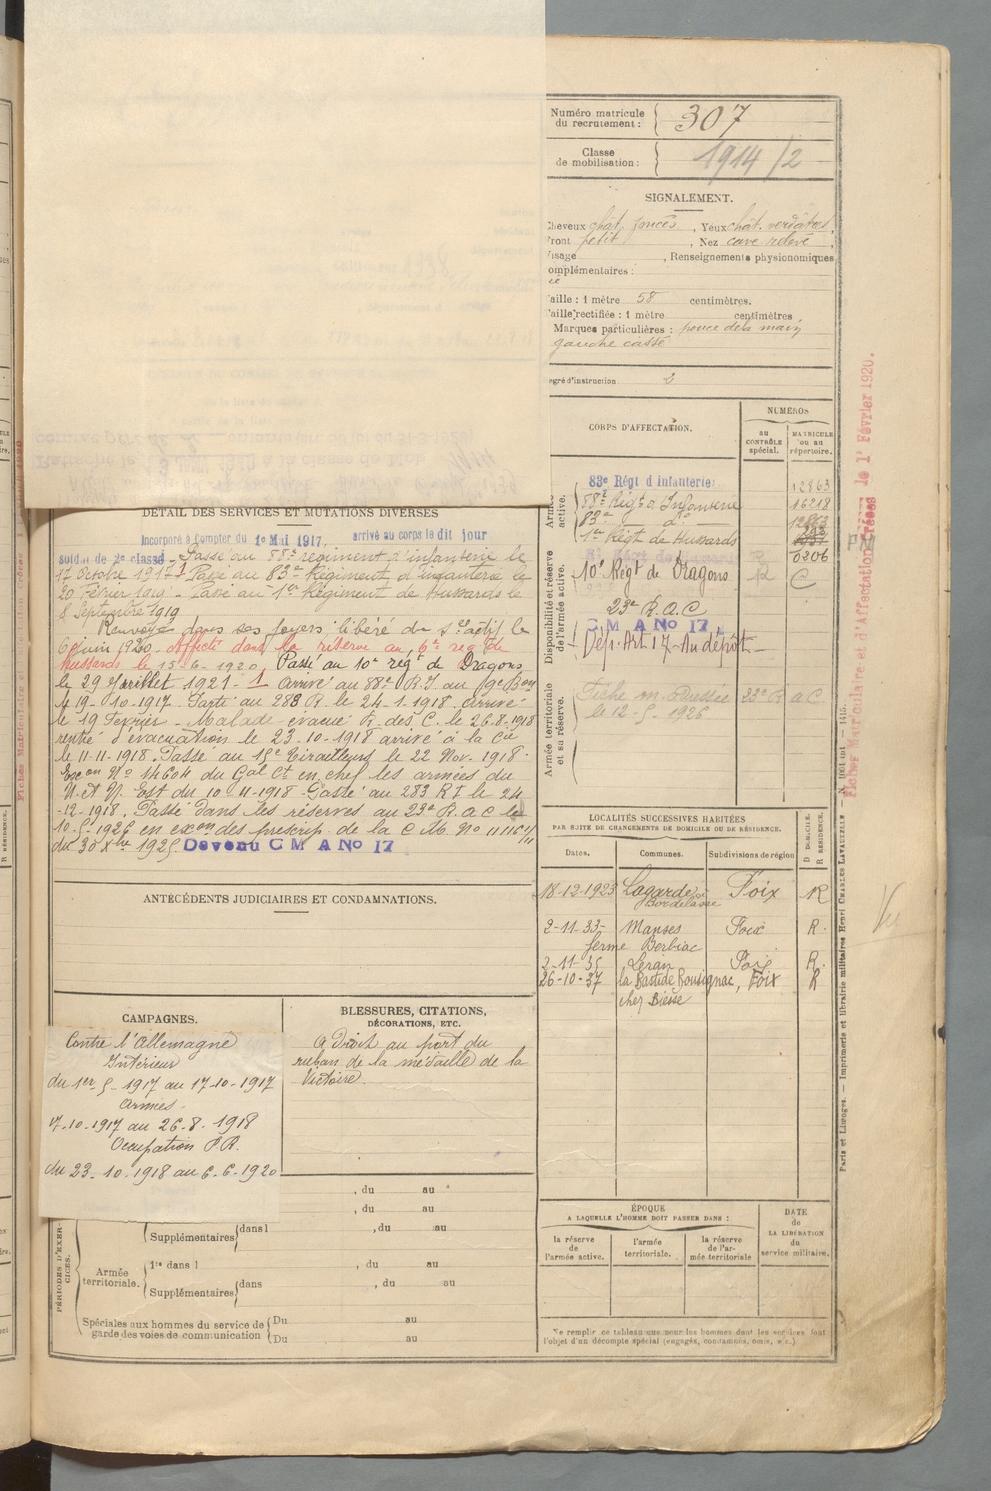 Numéro matricule
du recrutement :
307
Classe
de mobilisation :
1914/2
SIGNALEMENT.
heveux chât. foncés, Yeux chât. verdâtres,
ront petit, Nez cave relevé,
isage , Renseignements physionomiques
omplémentaires :
aille : 1 mètre 58 centimètres.
aille rectifiée : 1 mètre centimètres
Marques particulières : pouce de la main
gauche cassé
egré d'instruction 2
CORPS D'AFFECTATION.
NUMÉROS
au
CONTRÔLE
spécial.
MATRICULE
ou au
répertoire.
Armée
active.
83e Régt d'Infanterie 12863
88e Régt d'Infanterie 16218
83e do 12863
1er Régt de Hussards
0206
Disponibilité et réserve
de l'armée active.
10e Régt de Dragons R C
23e R.A.C
C M A No 17
Dép. Art 17 - Au dépôt
Armée territoriale
et sa réserve.
Fiche m. Dressée 23e R a C
le 12-5-1926
DÉTAIL DES SERVICES ET MUTATIONS DIVERSES
Incorporé à compter du 1er Mai 1917, arrivé au corps le dit jour
soldat de 2e classe - Passé au 88e régiment d'infanterie le
17 Octobre 1917 1 Passé au 83e Régiment d'infanterie le
20 Février 1919. - Passé au 1er Régiment de Hussards le
8 Septembre 1919
Renvoyé dans ses foyers libéré du sce actif le
6 juin 1920. Affecté dans la réserve au 6e rég de
hussards le 15-6-1920, Passé au 10e régt de Dragons
le 29 Juillet 1921 - 1 Arrivé au 88e R.I. au 9e Bon
le 19-10-1917. Parti au 283 R. le 24-1-1918. arrivé
le 19 Février - Malade évacué A. des C. le 26.8.1918
rentré d'évacuation le 23-10-1918 arrivé à la Cie
le 11-11-1918. Passé au 15e Tirailleurs le 22 Nov. 1918.
Exon No 14604 du Gal Ct en chef les armées du
N. et N. Est du 10-11-1918 Passé au 283 RI le 24
-12-1918. Passé dans les réserves au 23e R.a.c le
10-5-1926 en exon des prescrip. de la C M. No
du 30 Xbre 1925. Devenu C M A No 17
ANTÉCÉDENTS JUDICIAIRES ET CONDAMNATIONS.
LOCALITÉS SUCCESSIVES HABITÉES
PAR SUITE DE CHANGEMENTS DE DOMICILE OU DE RÉSIDENCE.
Dates. Communes. Subdivisions de région D DOMICILE. R RÉSIDENCE.
18-12-1923 Lagarde Foix R
Bordelasse
2-11-33- Manses Foix R.
ferme Berbiac
2-11-35 Leran Foix R.
26-10-37 la Bastide Bousignac, Foix R
chez Biesse
CAMPAGNES.
Contre l'Allemagne
Intérieur
du 1er 5-1917 au 17-10-1917
Armées -
17.10-1917 au 26-8-1918
Occupation P.R.
du 23-10-1918 au 6-6-1920
BLESSURES, CITATIONS,
DÉCORATIONS, ETC.
a Droit au port du
ruban de la médaille de la
Victoire.
, du au
, du au
PÉRIODES D'EXERCICES.
Supplémentaires dans l , du au
Armée
territoriale.
1re dans l , du au
Supplémentaires dans , du au
Spéciales aux hommes du service de
garde des voies de communication
Du au
Du au
ÉPOQUE
A LAQUELLE L'HOMME DOIT PASSER DANS :
la réserve
de
l'armée active.
l'armée
territoriale.
la réserve
de l'armée territoriale
DATE
de
LA LIBÉRATION
du
service militaire.
Ne remplir ce tableau que pour les hommes dont les services font
l'objet d'un décompte spécial (engagés, condamnés, omis, etc.).
Paris et Limoges. - Imprimerie et librairie militaires Henri CHARLES-LAVAUZELLE
Fiches Matriculaire et d'Affectation créées le 1er Février 1920.
Vu